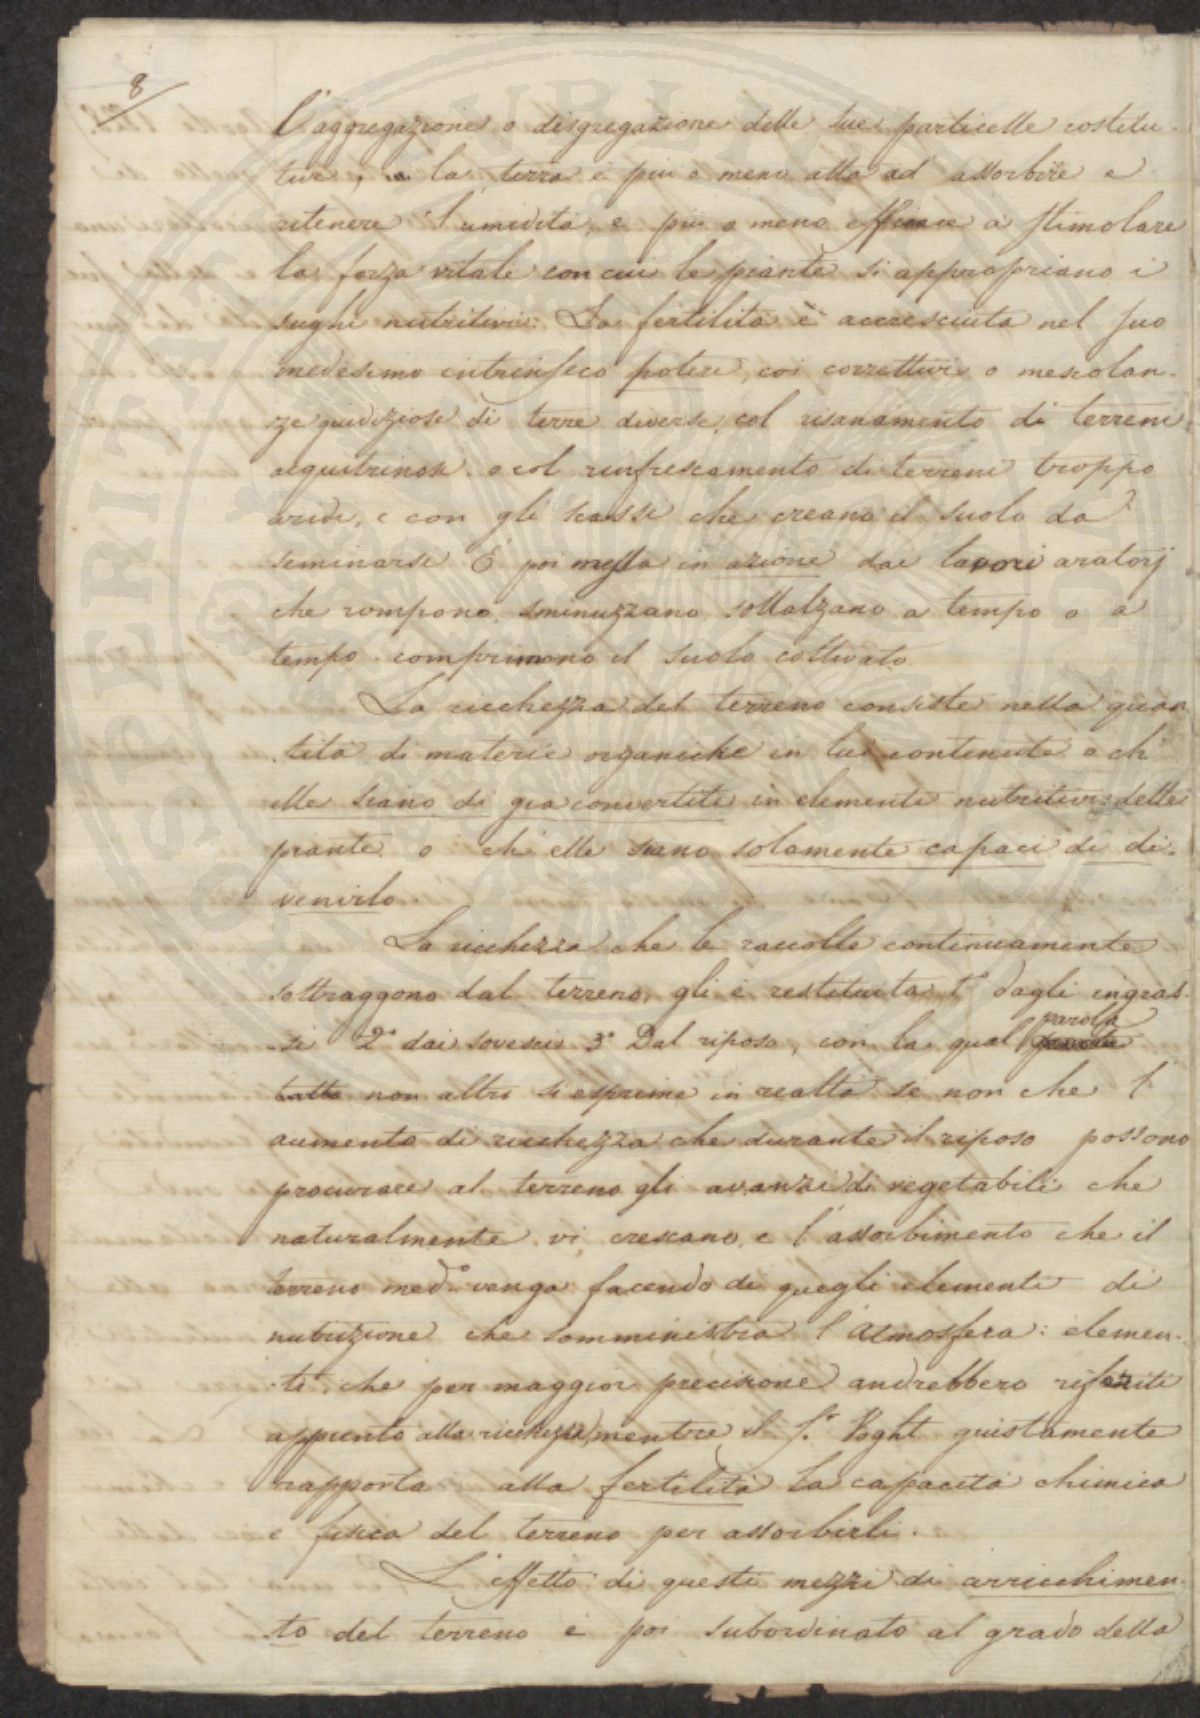 8
l'aggregazione o disgregazione delle sue particelle costitu-
tive, la terra è più o meno atta ad assorbire e
ritenere l'umidità, e più o meno efficace a stimolare
la forza vitale con cui le piante si appropriano i
sughi nutritivi. La fertilità è accresciuta nel suo
medesimo intrinseco potere, coi correttivi o mescolan-
ze giudiziose di terre diverse, col risanamento di terreni
acquitrinosi, o col rinfrescamento di terreni troppo
aridi, e con gli scassi che creano il suolo da
seminarsi. È poi messa in azione dai lavori aratorj
che rompono, sminuzzano, sollalzano a tempo o a
tempo comprimono il suolo coltivato.
La ricchezza del terreno consiste nella quan-
tità di materie organiche in lui contenute o ch'
elle siano di già convertite in elementi nutritivi delle
piante, o ch'elle siano solamente capaci di di-
venirlo.
La ricchezza che le raccolte continuamente
sottraggono dal terreno, gli è restituita 1° dagli ingras-
si 2° dai sovesci 3° Dal riposo, con la qual parola
tutto non altro si esprime in realtà se non che l'
aumento di ricchezza che durante il riposo possono
procurare al terreno gli avanzi di vegetabili che
naturalmente vi crescano, e l'assorbimento che il
terreno med.° venga facendo di quegli elementi di
nutrizione che somministra l'Atmosfera: elemen-
ti, che per maggior precisione andrebbero riferiti
appunto alla ricchezza, mentre il S.r Voght giustamente
rapporta alla fertilità la capacità chimica
e fisica del terreno per assorbirli.
L'effetto di questi mezzi di arricchimen-
to del terreno è poi subordinato al grado della